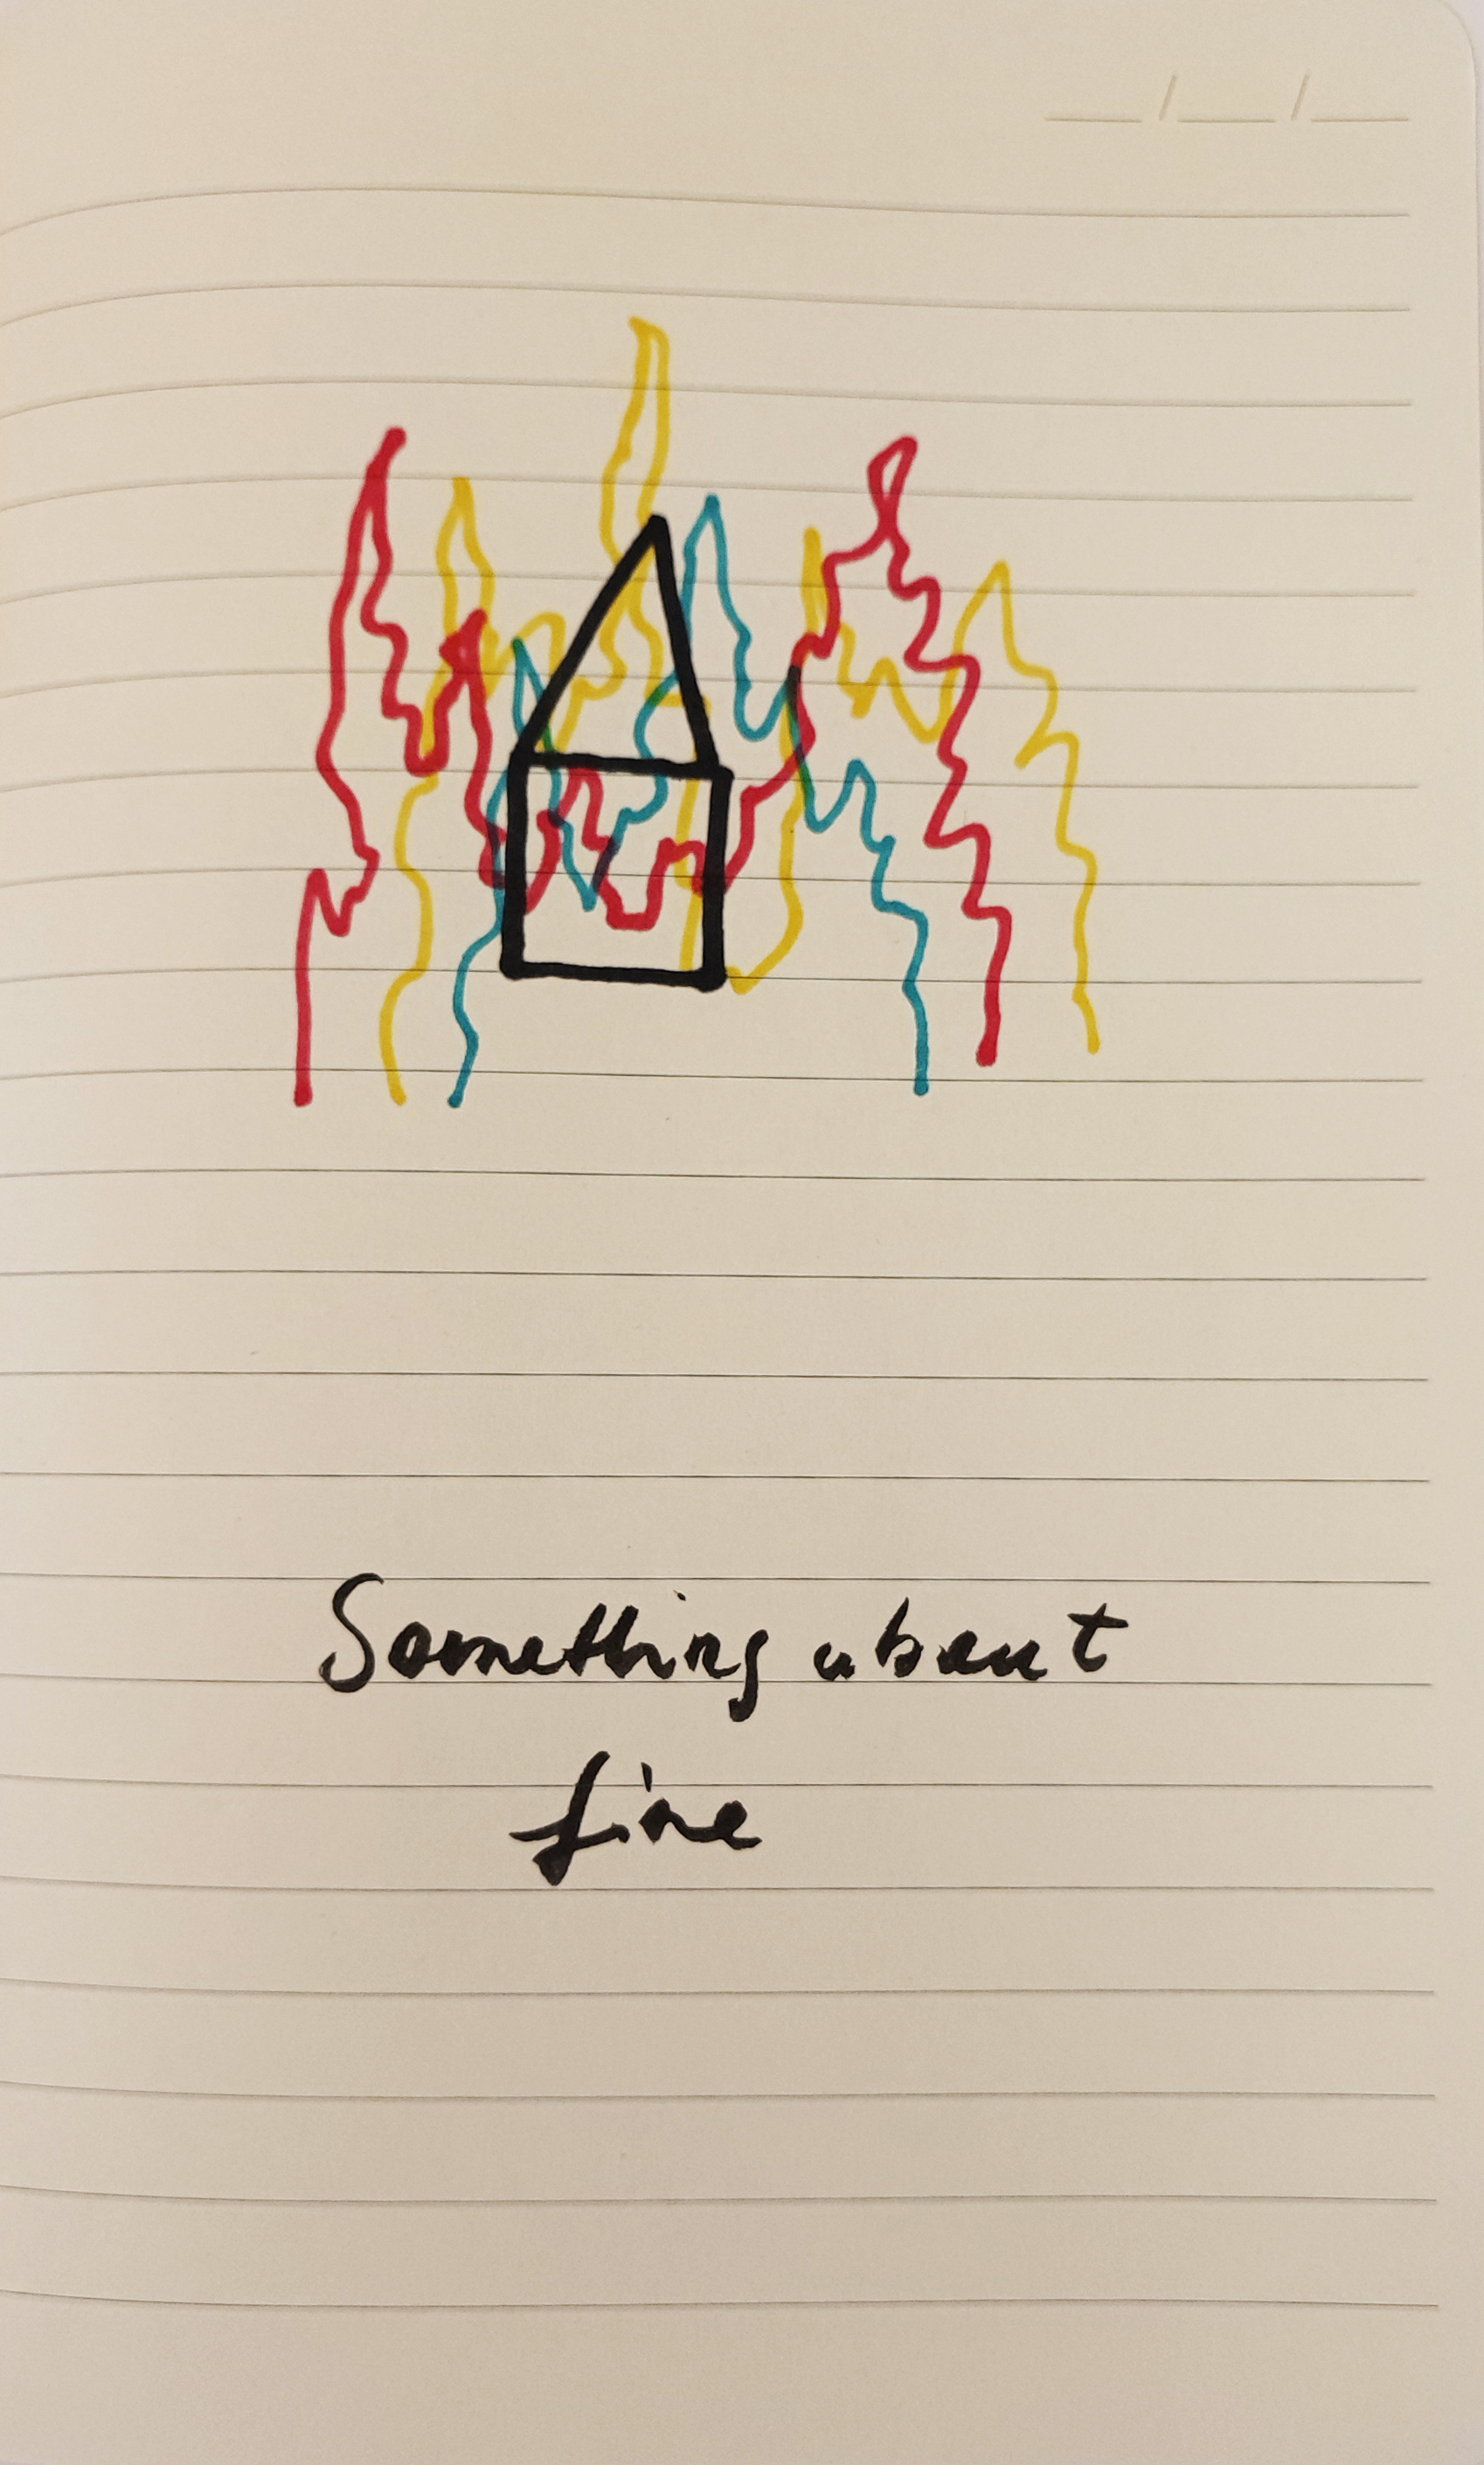 Something about
fire